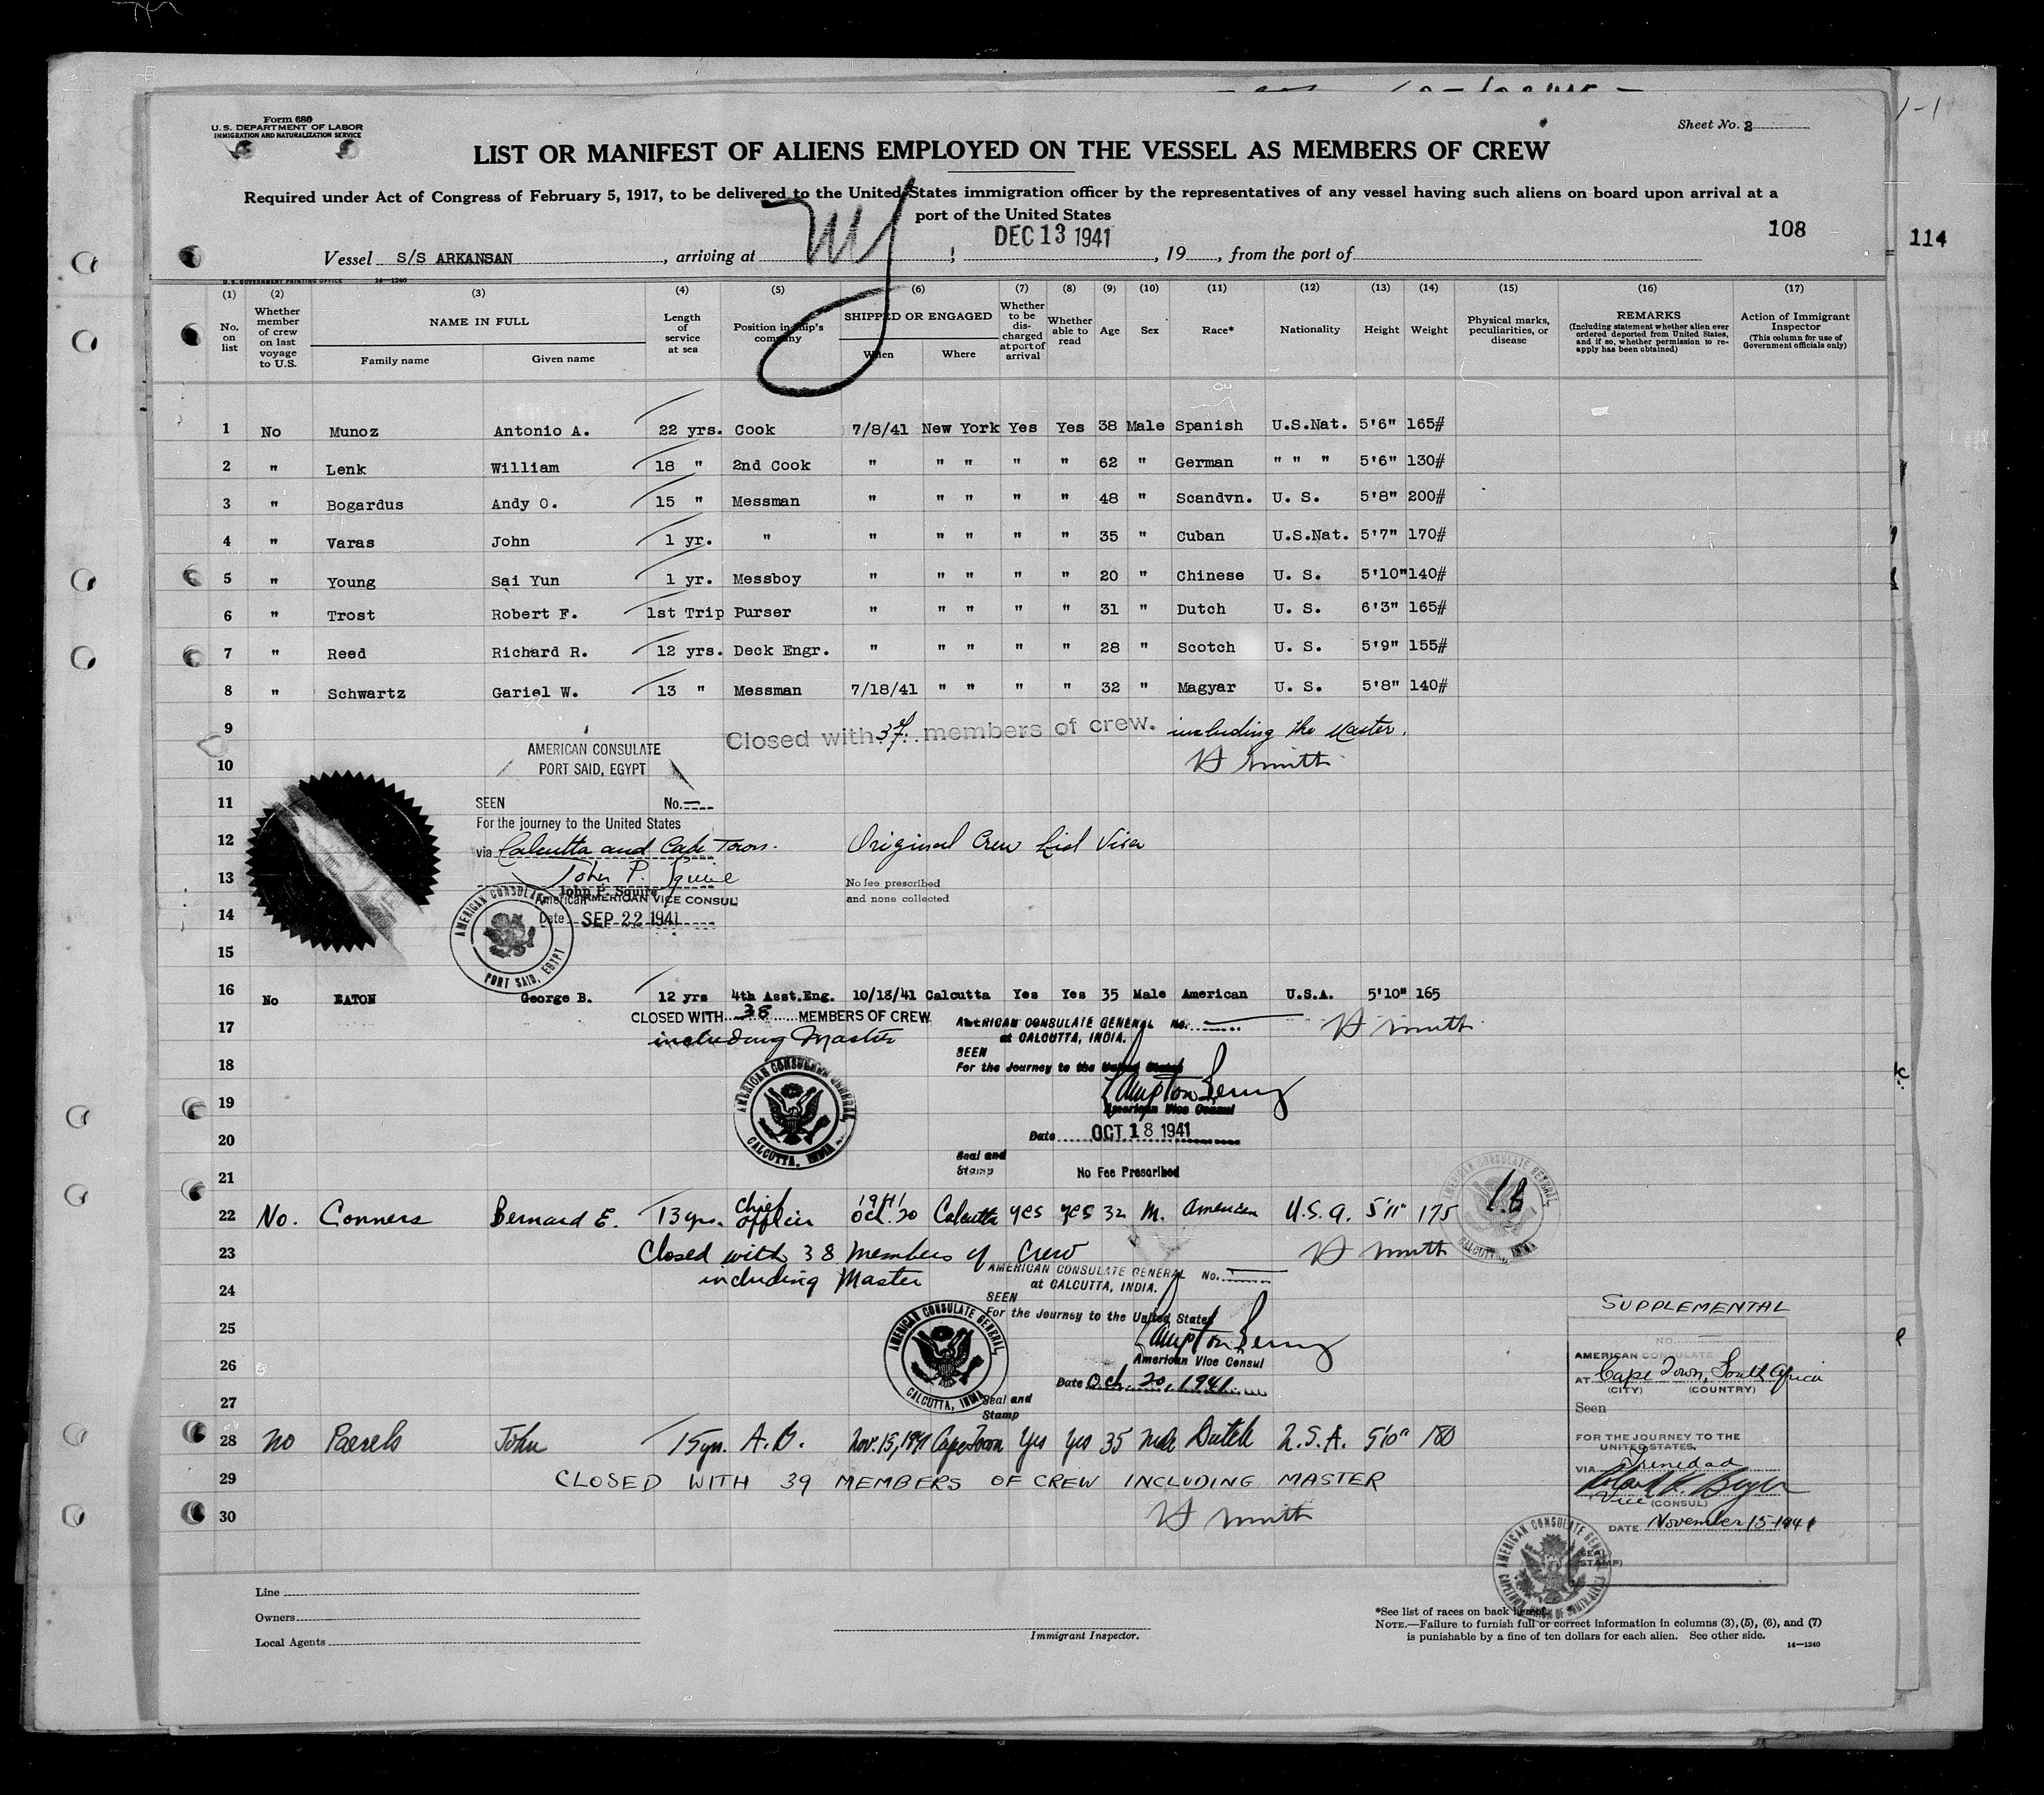 Form 680
U.S. DEPARTMENT OF LABOR
IMMIGRATION AND NATURALIZATION SERVICE
Sheet No. 2
LIST OR MANIFEST OF ALIENS EMPLOYED ON THE VESSEL AS MEMBERS OF CREW
Required under Act of Congress of February 5, 1917, to be delivered to the United States immigration officer by the representatives of any vessel having such aliens on board upon arrival at a
port of the United States
108
114
Vessel S/S ARKANSAN, arriving at NY, DEC 13 1941, 19, from the port of
U.S. GOVERNMENT PRINTING OFFICE 14—1240
(1) (2) (3) (4) (5) (6) (7) (8) (9) (10) (11) (12) (13) (14) (15) (16) (17)
No. on list
Whether member of crew on last voyage to U.S.
NAME IN FULL
Family name Given name
Length of service at sea
Position in ship's company
SHIPPED OR ENGAGED
When Where
Whether to be discharged at port of arrival
Whether able to read
Age
Sex
Race*
Nationality
Height
Weight
Physical marks, peculiarities, or disease
REMARKS
(Including statement whether alien ever ordered deported from United States, and if so, whether permission to reapply has been obtained)
Action of Immigrant Inspector
(This column for use of Government officials only)
1 No Munoz Antonio A. 22 yrs. Cook 7/8/41 New York Yes Yes 38 Male Spanish U.S.Nat. 5'6" 165#
2 " Lenk William 18 " 2nd Cook " " " " " 62 " German " " " 5'6" 130#
3 " Bogardus Andy O. 15 " Messman " " " " " 48 " Scandvn. U. S. 5'8" 200#
4 " Varas John 1 yr. " " " " " " 35 " Cuban U.S.Nat. 5'7" 170#
5 " Young Sai Yun 1 yr. Messboy " " " " " 20 " Chinese U. S. 5'10" 140#
6 " Trost Robert F. 1st Trip Purser " " " " " 31 " Dutch U. S. 6'3" 165#
7 " Reed Richard R. 12 yrs. Deck Engr. " " " " " 28 " Scotch U. S. 5'9" 155#
8 " Schwartz Gariel W. 13 " Messman 7/18/41 " " " " 32 " Magyar U. S. 5'8" 140#
9 Closed with 37 members of crew. including the Master.
10 H Smith
AMERICAN CONSULATE
PORT SAID, EGYPT
11 SEEN No. —
For the journey to the United States
12 via Calcutta and Cape Town. Original Crew List Visa
13 John P. Squire
John P. Squire
American AMERICAN VICE CONSUL
No fee prescribed
and none collected
14 Date SEP 22 1941
AMERICAN CONSULATE PORT SAID, EGYPT
15
16 No EATON George B. 12 yrs 4th Asst.Eng. 10/18/41 Calcutta Yes Yes 35 Male American U.S.A. 5'10" 165
17 CLOSED WITH 38 MEMBERS OF CREW
including Master
AMERICAN CONSULATE GENERAL No. —
at CALCUTTA, INDIA.
H Smith
18 SEEN
For the Journey to the United States
19 American Vice Consul
AMERICAN CONSULATE GENERAL CALCUTTA, INDIA
20 Date OCT 18 1941
21 Seal and Stamp
No Fee Prescribed
22 No. Conners Bernard E. 13 yrs. Chief officer 1941 Oct. 20 Calcutta yes yes 32 M. American U.S.A. 5'11" 175
AMERICAN CONSULATE GENERAL, CALCUTTA, INDIA
23 Closed with 38 members of Crew
H Smith
24 including Master
AMERICAN CONSULATE GENERAL No. —
at CALCUTTA, INDIA.
SEEN
25 For the Journey to the United States
26 American Vice Consul
AMERICAN CONSULATE GENERAL, CALCUTTA, INDIA
Date Oct. 20, 1941
27 Seal and Stamp
28 No Paesels John 15 yrs. A.B. Nov. 15, 1941 Cape Town Yes Yes 35 Male Dutch U.S.A. 5'10" 180
29 CLOSED WITH 39 MEMBERS OF CREW INCLUDING MASTER
30 H Smith
SUPPLEMENTAL
NO. —
AMERICAN CONSULATE
AT Cape Town, South Africa
(CITY) (COUNTRY)
Seen
FOR THE JOURNEY TO THE
UNITED STATES.
VIA Trinidad
Vice (CONSUL)
DATE November 15 1941
(SEAL STAMP)
AMERICAN CONSULATE GENERAL CAPETOWN, UNION OF SOUTH AFRICA
Line
Owners
Local Agents
Immigrant Inspector.
*See list of races on back hereof.
NOTE.—Failure to furnish full or correct information in columns (3), (5), (6), and (7)
is punishable by a fine of ten dollars for each alien. See other side.
14—1240